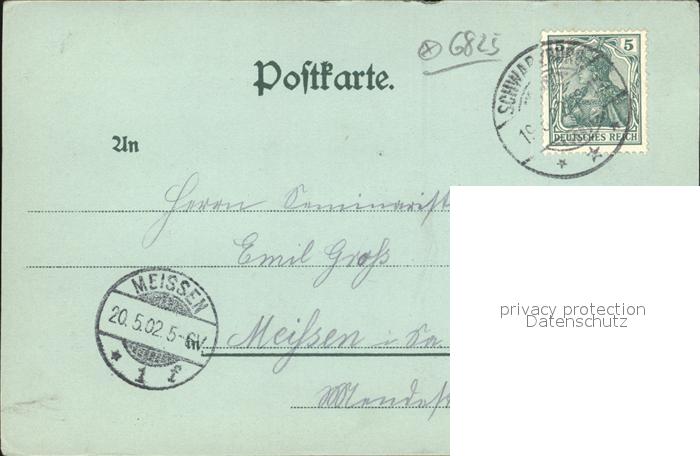 6825
Postkarte.
SCHWARZBURG
19.
5
DEUTSCHES REICH
An
Herrn Seminarist
Emil Groß
MEISSEN
20.5.02.5-6N.
1 f
in
Meißen i. Sa
privacy protection
Datenschutz